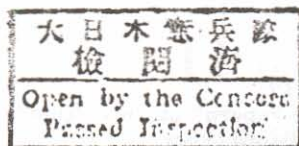 大日本憲兵隊
檢閲済
Open by the Censors
Passed Inspection